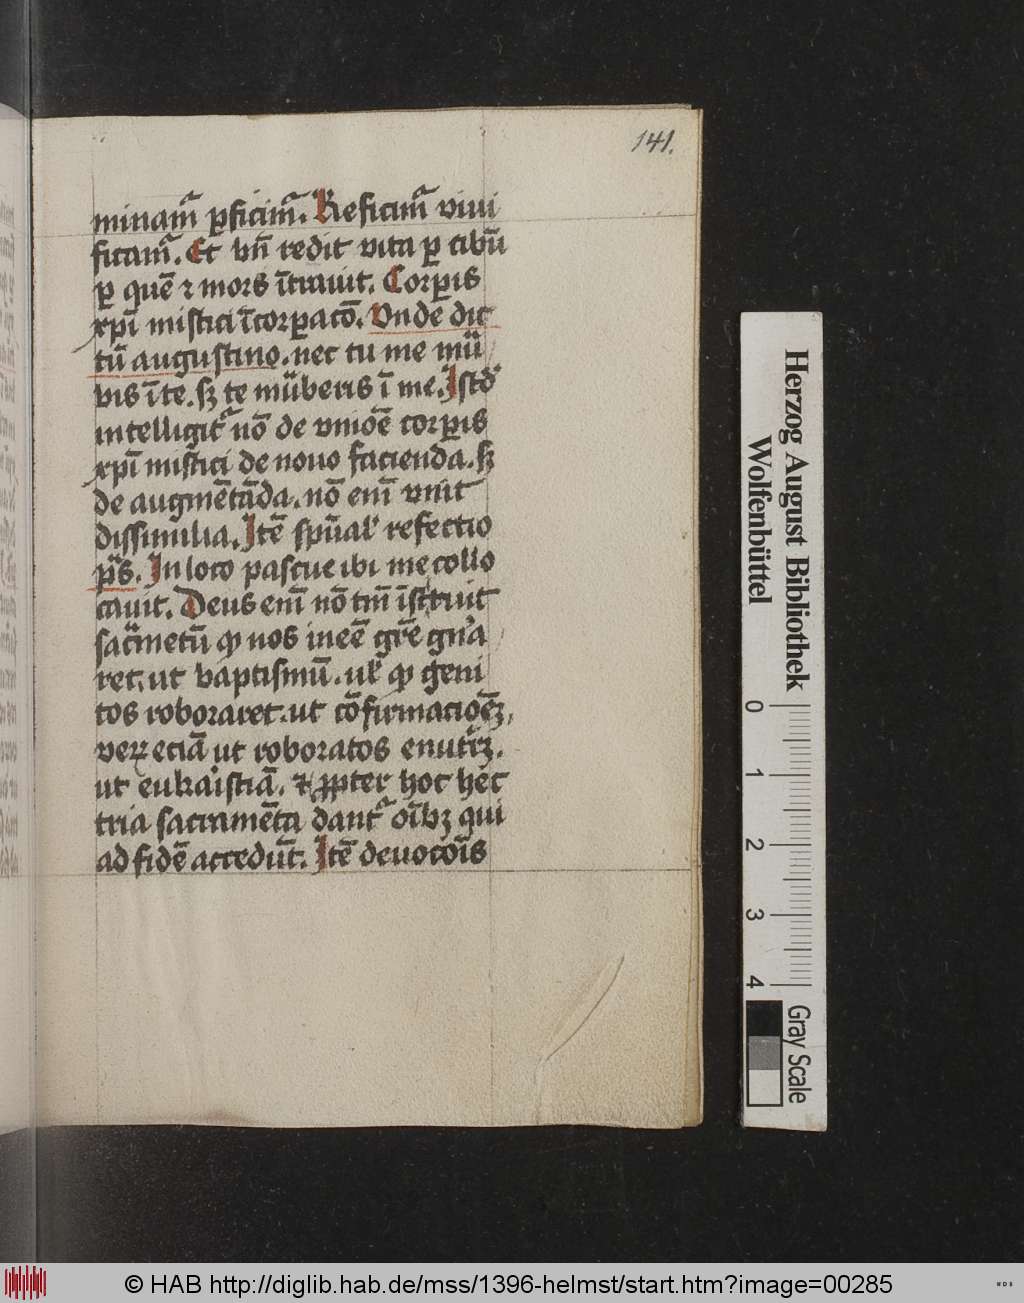 141.
minam᷑ ꝑficim᷑. Reficim᷑ viui
ficam᷑. Et vn̄ redit vita ꝑ cibū
ꝑ quē ⁊ mors ītrauit. Corꝑis
xp̄i mistici īcorꝑacō. Vnde dic
tū augustino. nec tu me mū
bis ī te. sꝫ te mūberis ī me. Istd̄
intelligit᷑ nō de vniōe corꝑis
xp̄i mistici de nouo facienda. sꝫ
de augmētāda. nō eni̅ vnit
dissimilia. Itē sp̄ual' refectio
pˢ̄. In loco pascue ibi me collo
cauit. Deus eni̅ nō tm̄ īstituit
sac̄metū ꝙ nos ineē gr̄e gn̄a
ret. ut baptismū. ul' ꝙ geni
tos roboraret. ut cōfirmacioēꝫ,
veꝝ eciā ut roboratos enutⁱꝫ.
ut eukaⁱstiā. ⁊ ꝓpter hoc hec
tria sacramēta dant᷑ oībꝫ qui
ad fidē accedūt. Itē deuocōis
Herzog August Bibliothek
Wolfenbüttel
0 1 2 3 4
Gray Scale
© HAB http://diglib.hab.de/mss/1396-helmst/start.htm?image=00285
WDB